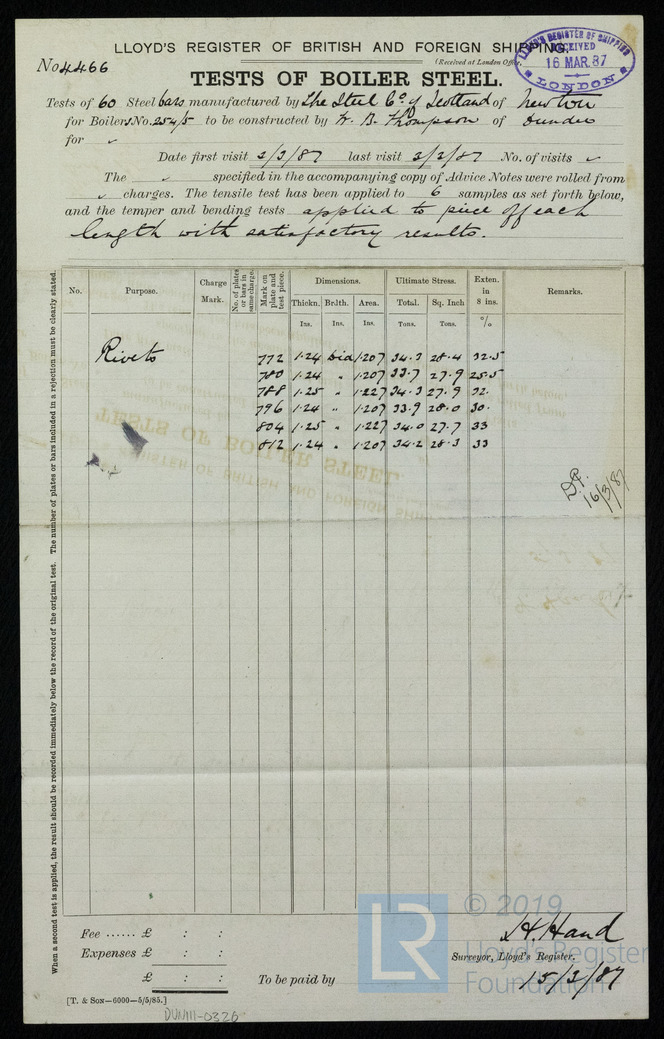 LLOYD'S REGISTER OF BRITISH AND FOREIGN SHIPPING.
No 4466
(Received at London Office
LLOYD'S REGISTER OF SHIPPING
RECEIVED
16 MAR.87
LONDON
TESTS OF BOILER STEEL.
Tests of 60 Steel bars manufactured by The Steel Co. of Scotland of Newton
for Boilers No. 254/5 to be constructed by W. B. Thompson of Dundee
for "
Date first visit 2/3/87 last visit 2/3/87 No. of visits
The specified in the accompanying copy of Advice Notes were rolled from
charges. The tensile test has been applied to 6 samples as set forth below,
and the temper and bending tests applied to piece off each
length with satisfactory results.
No. Purpose. Charge Mark. No. of plates or bars in same charge. Mark on plate and test piece. Dimensions. Ultimate Stress. Exten. in 8 ins. Remarks.
Thickn. Brlth. Area. Total. Sq. Inch
Ins. Ins. Ins. Tons. Tons. %
Rivets 772 1.24 dia 1.207 34.3 28.4 32.5
780 1.24 " 1.207 33.7 27.9 25.5
788 1.25 " 1.227 34.3 27.9 32.
796 1.24 " 1.207 33.9 28.0 30.
804 1.25 " 1.227 34.0 27.7 33
812 1.24 " 1.207 34.2 28.3 33
D.P.
16/3/87
When a second test is applied, the result should be recorded immediately below the record of the original test. The number of plates or bars included in a rejection must be clearly stated.
Fee ...... £ : :
Expenses £ : :
£ : :
To be paid by
H. Hand
Surveyor, Lloyd's Register.
15/3/87
[T. & Son—6000—5/5/85.]
DUN111-0326
LR
© 2019
Lloyd's Register
Foundation